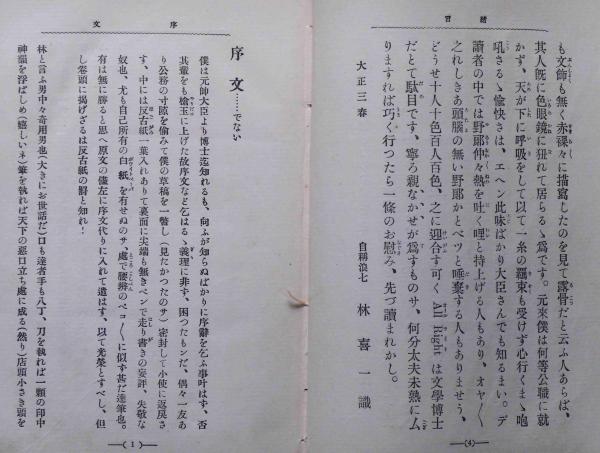 緒言
も文飾も無く赤裸々に描寫したのを見て露骨だと云ふ人あらば、
其人既に色眼鏡に狃れて居らるゝ爲です。元來僕は何等公職に就
かず、天が下に呼吸をして以て一糸の羈束も受けず心行くまゝ咆
吼さるゝ愉快さは、エヘン此味ばかり大臣さんでも知るまい。デ
讀者の中では野郞仲々熱を吐く哩と持上げる人もあり、オヤ〱
之れしきあ頭腦の無い野郞かとベツと唾棄する人もありませう、
どうせ十人十色百人百色、之に迎合す可く All Right は文學博士
だとて駄目です、寧ろ親なかせが爲すものサ、何分太夫未熟に厶
りますれば巧く行つたら一條のお慰み、先づ讀まれかし。
大正三春
自稱浪七 林喜一識
(4)
序文
序文……でない
僕は元帥大臣より博士迄知れるも、向ふが知らぬばかりに序辭を乞ふ事叶はす、否
其輩をも槍玉に上げた故序文など乞はるゝ義理に非す、困つたもンだ、偶々一友あ
り公務の寸隙を偸みて僕の草稿を一瞥し(見たかつたのサ)密封して小使に返戾さ
す、中には反古紙一葉入れありて裏面に尖端も無きペンで走り書きの妄評、失敬な
奴也、尤も自己所有の白紙を有せぬのサ、處で腰辨のペコ〱に似す甚だ達筆也。
有は無に勝ると思へ原文の儘左に序文代りに入れて遣はす、以て光榮とすべし、但
し卷頭に揭げざるは反古紙の罸と知れ!
林と言ふ男中々奇用男也(大きにお世話だ)口も達者手も八丁、刀を執れば一顆の印中
神韻を浮ばしめ(嬉しいネ)筆を執れば天下の惡口立ち處に成る(然り)店頭小さき頭を
(1)